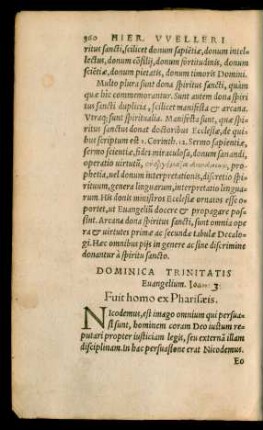 360 HIER. VVELLERI
ritus sancti, scilicet donum sapiẽtiæ, donum intel
lectus, donum cõsilij, donum fortitudinis, donum
sciẽtiæ, donum pietatis, donum timoris Domini.
Multo plura sunt dona spiritus sancti, quàm
quæ hîc commemorantur. Sunt autem dona spiri
tus sancti duplicia, scilicet manifesta & arcana.
Vtraq; sunt spiritualia. Manifesta sunt, quæ spiri
tus sanctus donat doctoribus Ecclesiæ, de quibus
scriptum est 1. Corinth. 12. Sermo sapientiæ,
sermo scientiæ, fides miraculosa, donum sanandi,
operatio uirtutũ, prophetia,
uel donum interpretationis, discretio spirituum,
genera linguarum, interpretatio linguarum
His donis ministros Ecclesiæ ornatos esse oportet,
ut Euangeliũ docere & propagare possint.
Arcana dona spiritus sancti, sunt omnia opera
& uirtutes primæ ac secundæ tabulæ Decalogi.
Hæc omnibus pijs in genere ac sine discrimine
donantur à spiritu sancto.
DOMINICA TRINITATIS
Euangelium. Ioan: 3:
Fuit homo ex Pharisæis.
Nicodemus, est imago omnium qui persuasi
sunt, hominem coram Deo iustum reputari
propter iusticiam legit, seu externã illam
disciplinam. In hac persuasione erat Nicodemus.
Eo